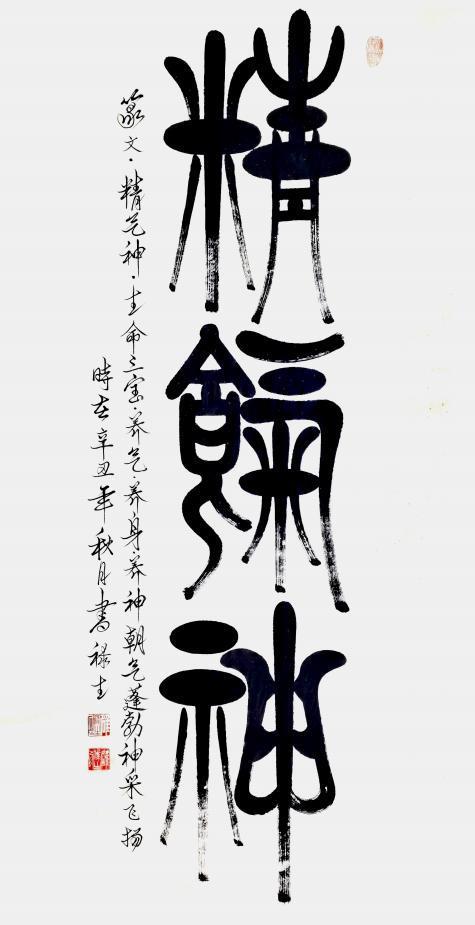 精餼神
篆文·精气神·生命三宝·养气·养身养神朝气蓬勃神采飞扬
時在辛丑年秋月書禄生